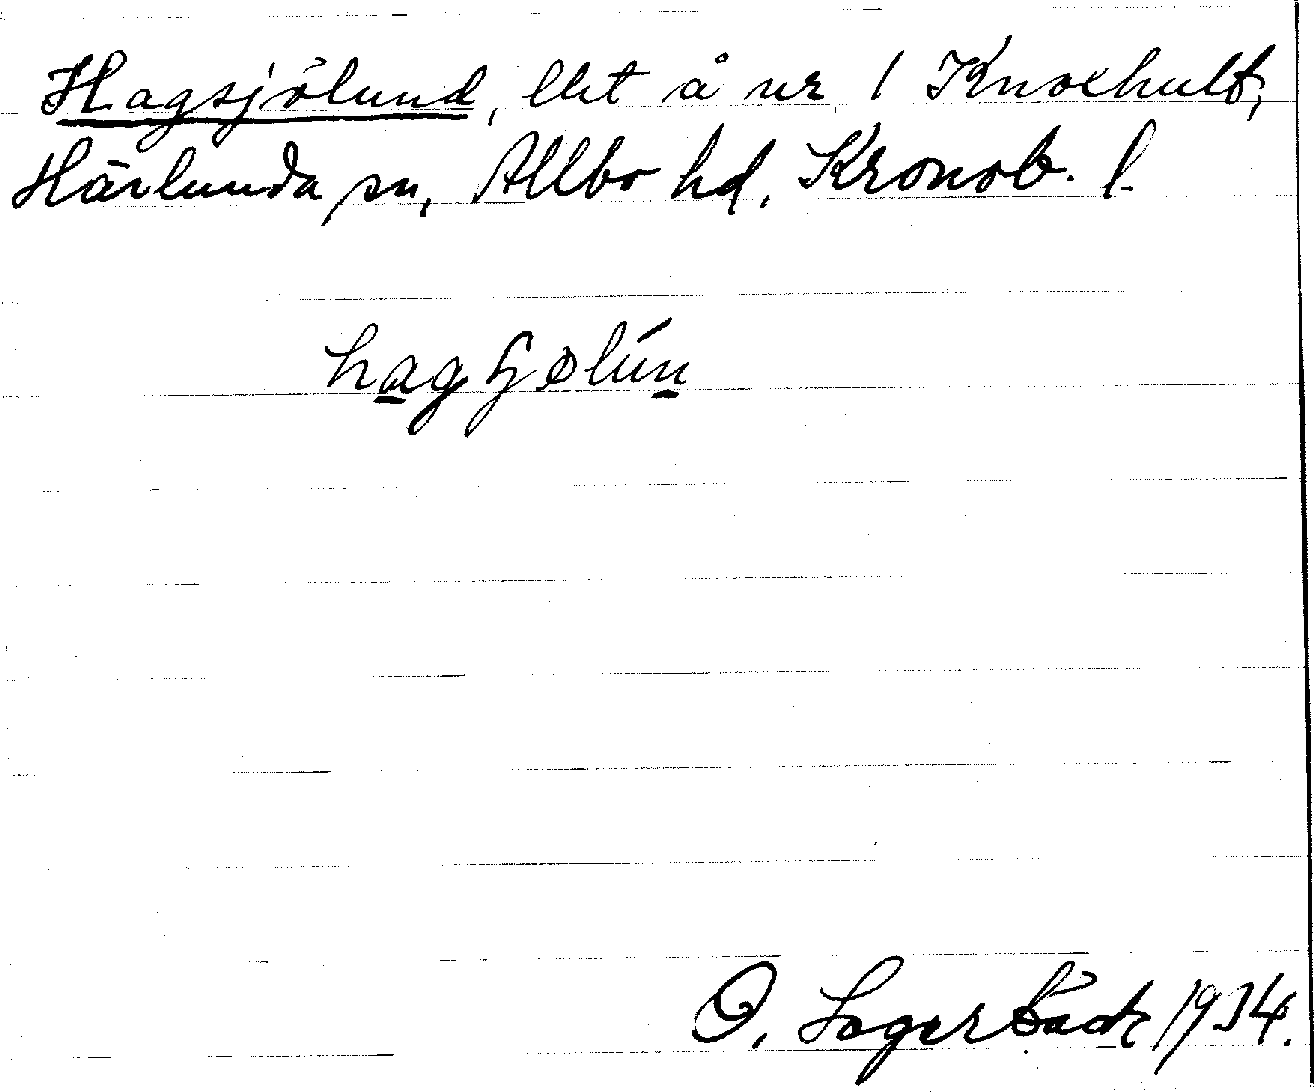 Hagsjölund, llt å nr 1 Knoxhult,
Härlunda sn, Allbo hd, Kronob. l.
O. Lagerbäck 1934.